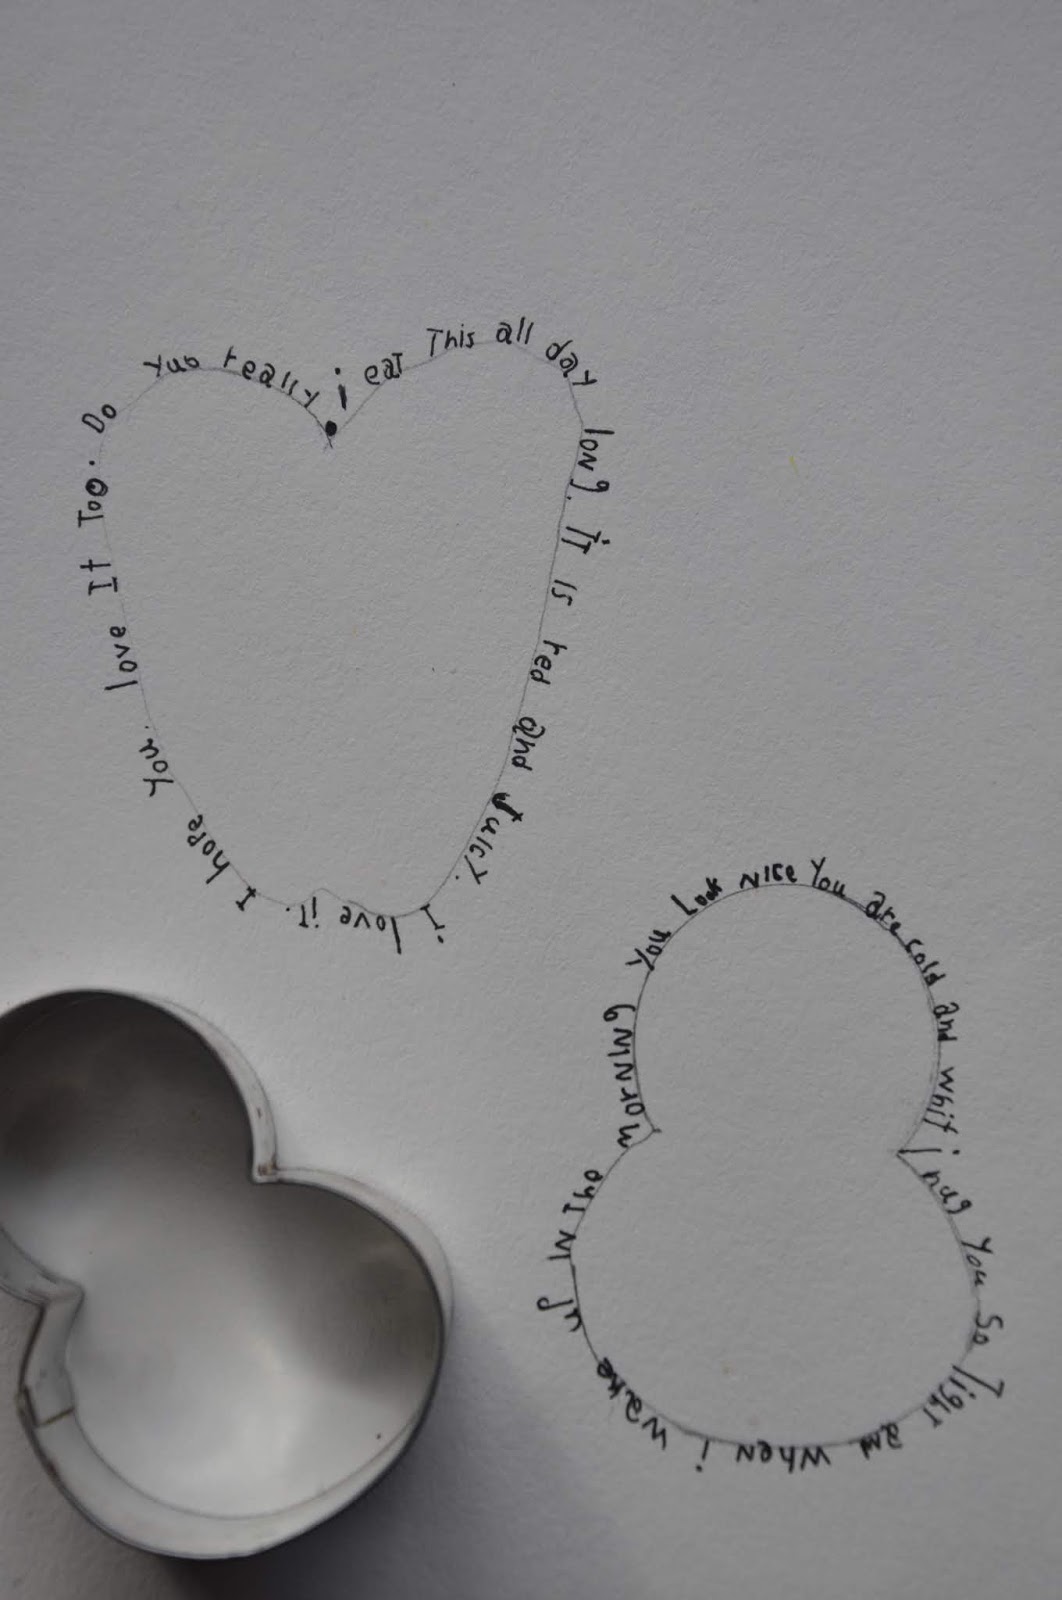 i eat This all day long. iT is red and Juicy. i love it. I hope you love It Too. Do yuo really
You Look Nice You are cold and whit i hug You So TighT and wheN i wake up iN The morNiNG